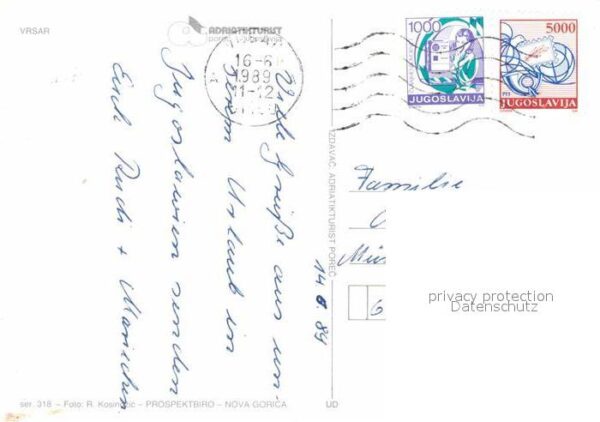 VRSAR
ADRIATIKTURIST
poreč - jugoslavija
16-6
1989
11-12
1000
JUGOSLAVIJA
5000
PTT
JUGOSLAVIJA
Viele Grüße aus un-
serem Urlaub in
Jugoslawien senden
Euch Rudi + Mariechen
14 6. 89
IZDAVAČ: ADRIATIKTURIST POREČ
Familie
privacy protection
Datenschutz
ser. 318 – Foto: R. Kosinožić – PROSPEKTBIRO – NOVA GORICA
UD